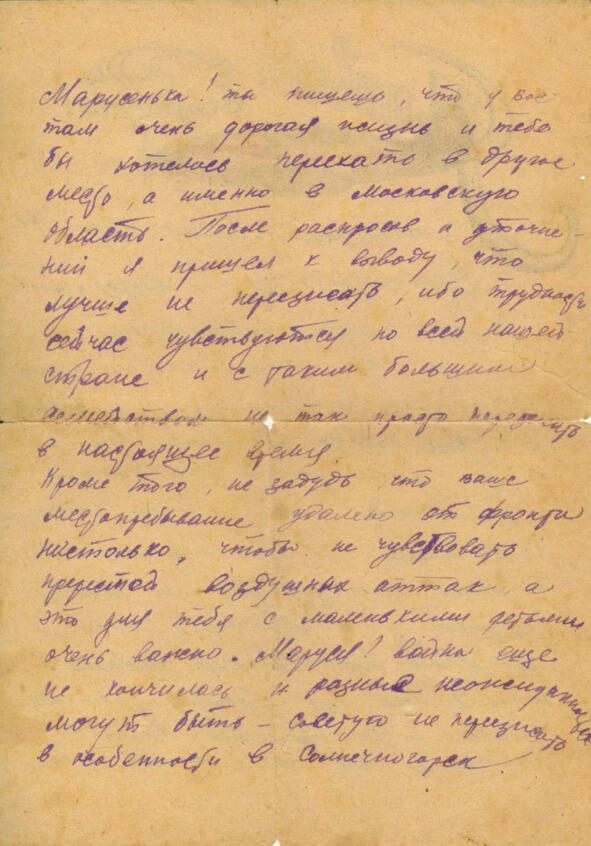 Марусенька! ты пишешь, что у вас
там очень дорогая жизнь и тебе
бы хотелось переехать в другое
место, а именно в Московскую
область. После распросов и уточне-
ний я пришел к выводу, что
лучше не переезжать, ибо трудность
сейчас чувствуются по всей нашей
стране и с таким большим
семейством не так просто
в настоящее время.
Кроме того, не забудь что ваше
местопребывание удалено от фронта
настолько, чтобы не чувствовать
воздушных аттак, а
это для тебя с маленькими детьми
очень важно. Маруся! война еще
не кончилась и разные
могут быть – советую не переезжать
в особенности в Солнечногорск